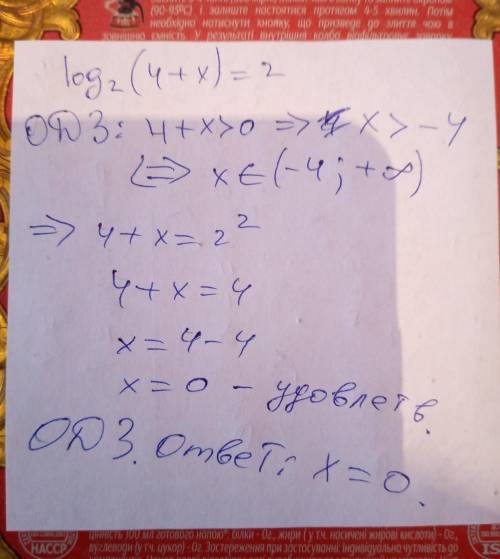 (90-95°C) і залиште настоятися протягом 4-5 хвилин. Потім
необхідно натиснути кнопку, що призведе до злиття чаю в
зовнішню ємність. У результаті внутрішня колба відфільтровує
log₂(4+x)=2
ОДЗ: 4+x>0 => x>-4
<=> x∈(-4;+∞)
=> 4+x=2²
4+x=4
x=4-4
x=0 - удовлетв.
ОДЗ. Ответ: x=0.
НАССР
цінність 100 мл готового напою: білки - 0г., жири (у т.ч. насичені жирові кислоти) - 0г.,
вуглеводи (у т.ч. цукор) - 0г. Застереження при застосуванні: індивідуальна чутливість до